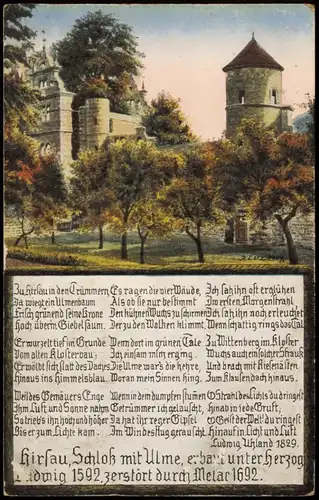 Zu Hirsau in den Trümmern
Da wiegt ein Ulmenbaum
Frisch grünend seine Krone
Hoch überm Giebelsaum.
Er wurzelt tief im Grunde
Vom alten Klosterbau;
Er wölbt sich statt des Dachs
Hinaus ins Himmelsblau.
Weil des Gemäuers Enge
Ihm Luft und Sonne nahm
So trieb's ihn hoch und höher
Bis er zum Lichte kam.
Es ragen die vier Wände,
Als ob sie nur bestimmt
Den kühnen Wuchs zu schirmen
Der zu den Wolken klimmt.
Wenn dort im grünen Tale
Ich einsam mich erging
Die Ulme war's die hehre,
Woran mein Sinnen hing.
Wenn in dem dumpfen stummen
Getrümmer ich gelauscht,
Da hat ihr reger Gipfel
Im Windesflug gerauscht.
Ich sah ihn oft erglühen
Im ersten Morgenstrahl
Ich sah ihn noch erleuchtet
Wenn schattig rings das Tal.
Zu Wittenberg im Kloster
Wuchs auch ein solcher Strauß
Und brach mit Riesenästen
Zum Klausendach hinaus.
O Strahl des Lichts du dringest
Hinab in jede Gruft,
O Geist der Welt du ringest
Hinauf in Licht und Luft.
Ludwig Uhland 1829.
Hirsau, Schloß mit Ulme, erbaut unter Herzog
Ludwig 1592, zerstört durch Melac 1692.